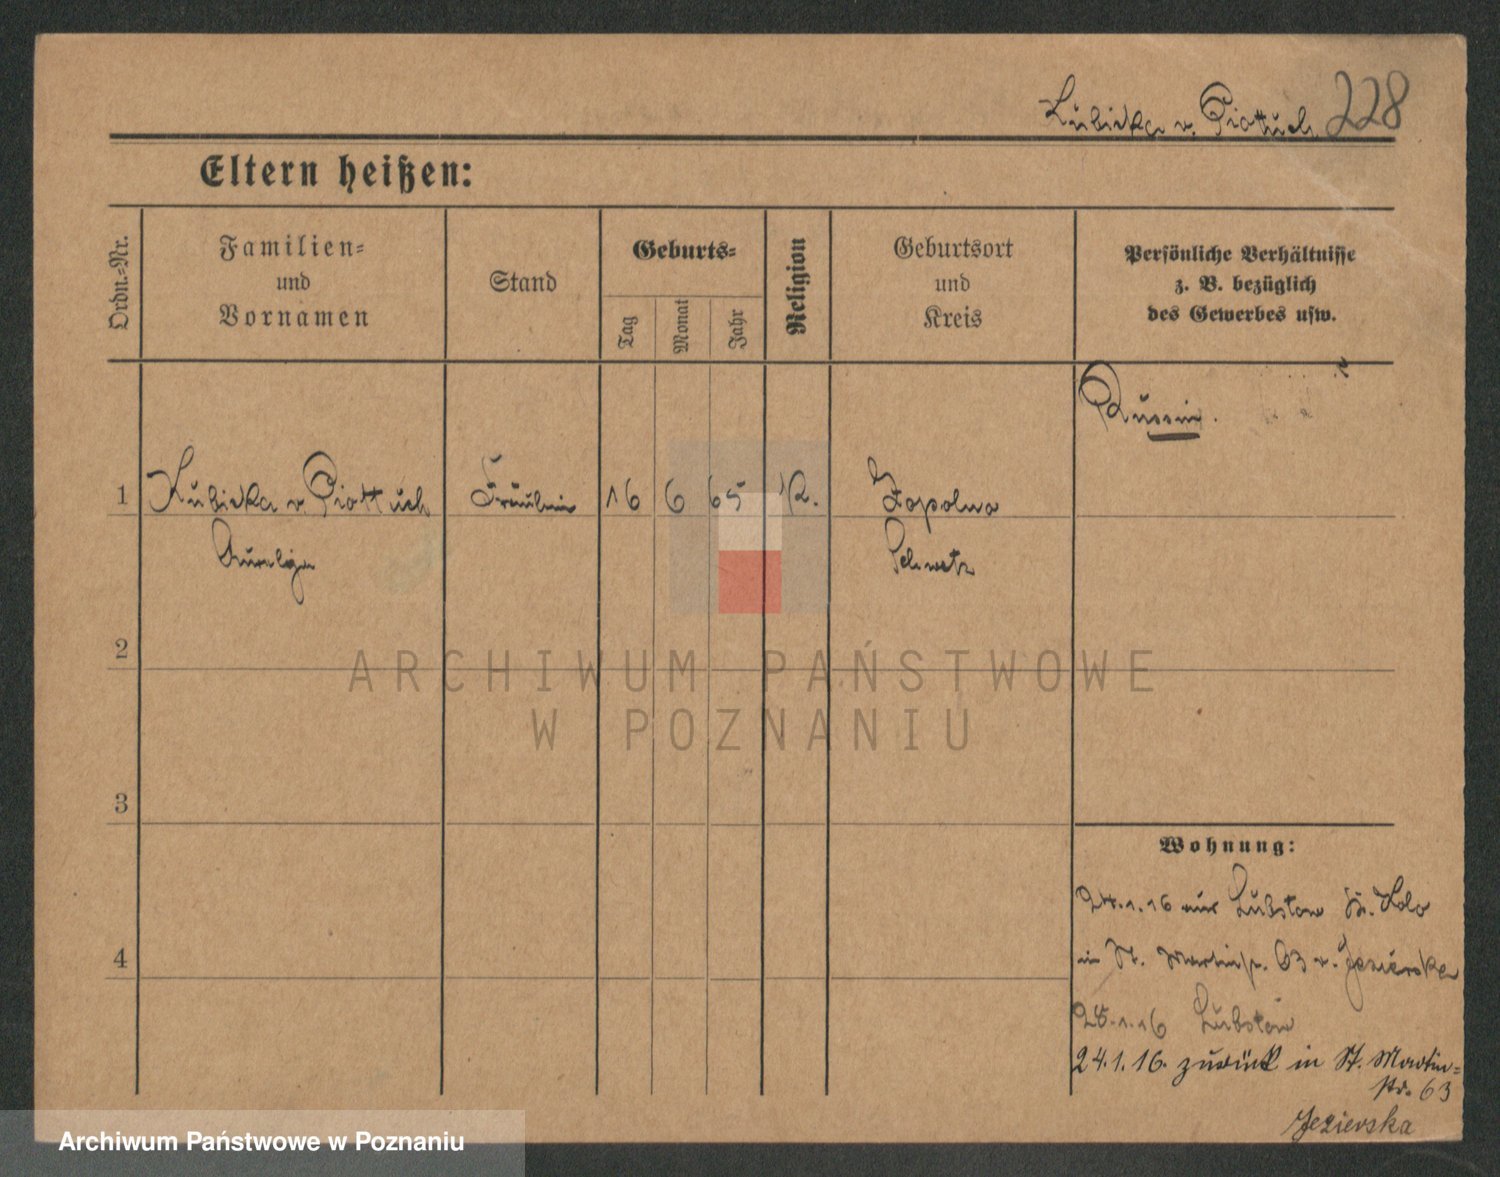 Lubicka v. Piottuch 228
Eltern heißen:
Ordn.=Nr.
Familien=
und
Vornamen
Stand
Geburts=
Tag
Monat
Jahr
Religion
Geburtsort
und
Kreis
Persönliche Verhältnisse
z. B. bezüglich
des Gewerbes usw.
Russin.
1 Lubicka v Piottuch Fräulein 16 6 65 K. Zopolno
Aurelja Schwetz
2
3
4
Wohnung:
24.1.16 aus Lubstow Kr. Kolo
in St. Martinstr. 63 v. Jezierska
28.1.16 Lubstow
24.1.16. zurück in St. Martin=
str. 63
Jezierska
ARCHIWUM PAŃSTWOWE
W POZNANIU
Archiwum Państwowe w Poznaniu